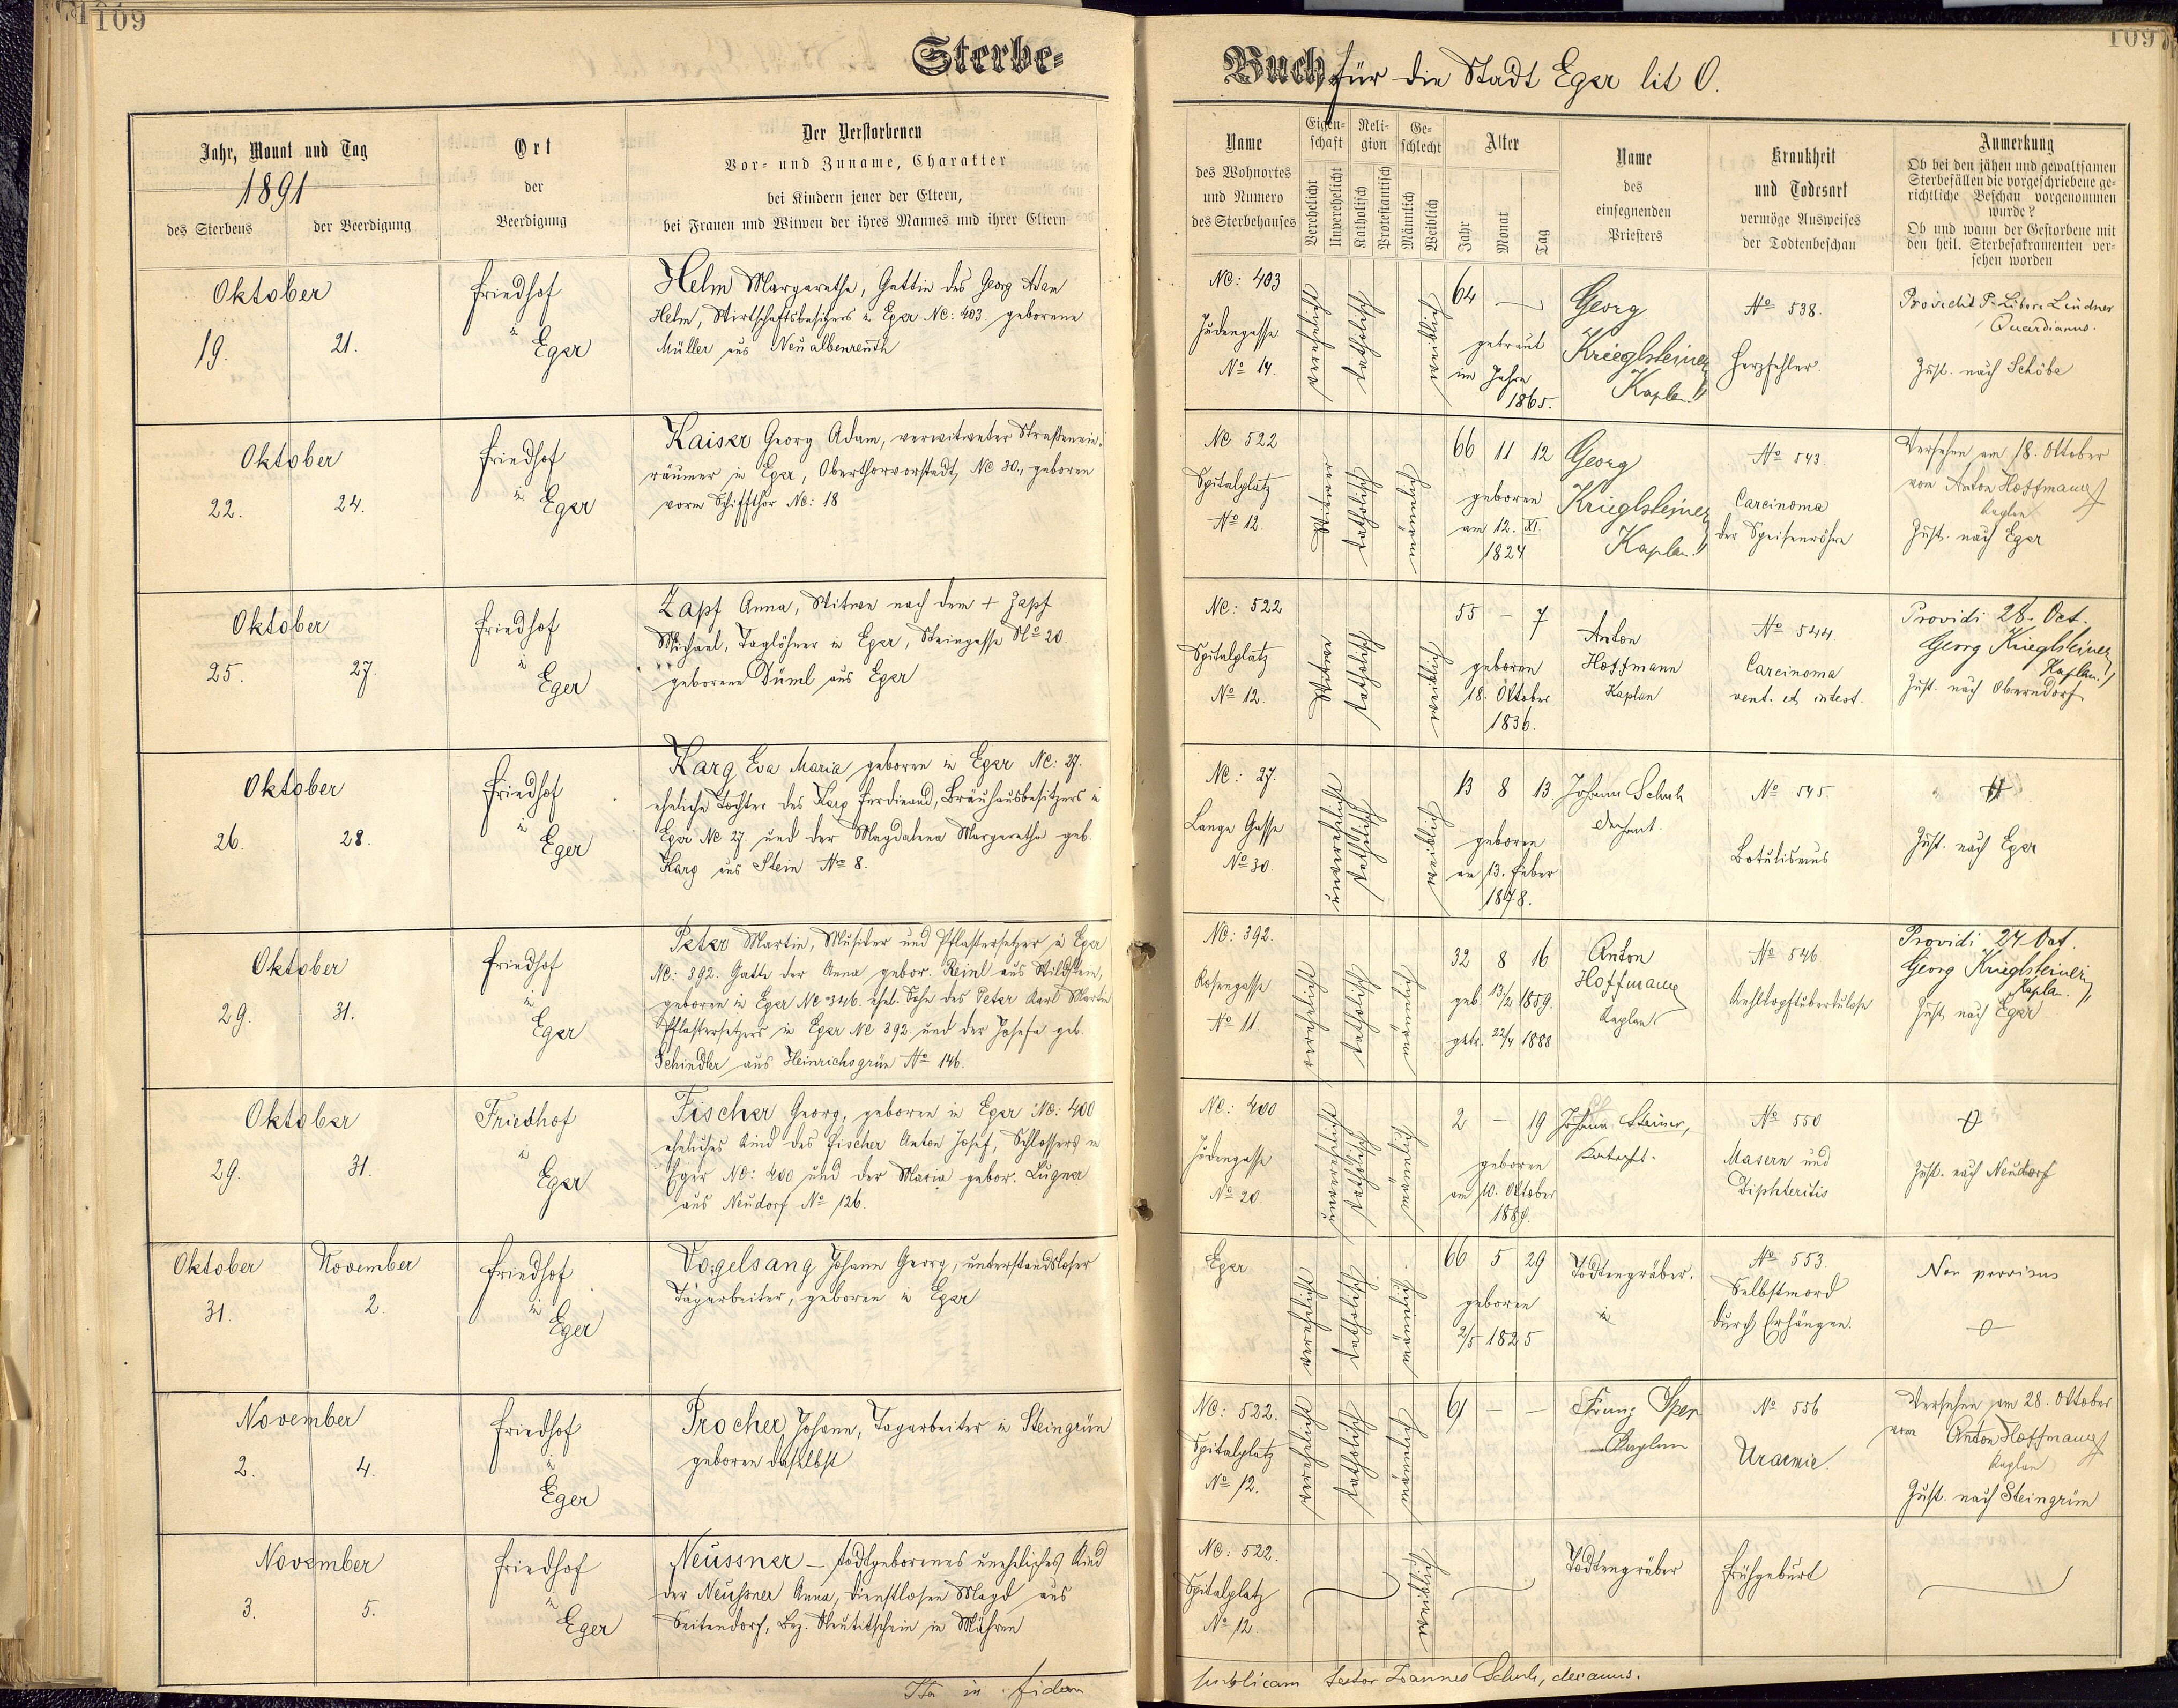 109
109
Sterbe-
Buch für die Stadt Eger lit O.
Jahr, Monat und Tag
1891
des Sterbens
der Beerdigung
Ort
der
Beerdigung
Der Verstorbenen
Vor- und Zuname, Charakter
bei Kindern jener der Eltern,
bei Frauen und Witwen der ihres Mannes und ihrer Eltern
Name
des Wohnortes
und Numero
des Sterbehauses
Eigen-
schaft
Verehelicht
Unverehelicht
Reli-
gion
Katholisch
Protestantisch
Ge-
schlecht
Männlich
Weiblich
Alter
Jahr
Monat
Tag
Name
des
einsegnenden
Priesters
Krankheit
und Todesart
vermöge Ausweises
der Todtenbeschau
Anmerkung
Ob bei den jähen und gewaltsamen
Sterbefällen die vorgeschriebene ge-
richtliche Beschau vorgenommen
wurde?
Ob und wann der Gestorbene mit
den heil. Sterbesakramenten ver-
sehen worden
Oktober
19.
21.
Friedhof
in
Eger
Helm Margaretha, Gattin des Georg Adam
Helm, Wirtschaftsbesitzers in Eger NC: 403 geborene
Müller aus Neualbenreuth
NC: 403
Judengasse
No 14.
verehelicht
katholisch
weiblich
64 —
getraut
im Jahre
1865.
Georg
Krieglsteiner
Kaplan
No 538.
Herzfehler.
Providit P. Libor. Lindner
Quardianus.
Zust. nach Schöba
Oktober
22.
24.
Friedhof
in
Eger
Kaiser Georg Adam, verwitweter Straßenein-
räumer in Eger, Oberthorvorstadt, NC 30., geboren
vorm Schiffthor NC: 18
NC 522
Spitalplatz
No 12.
Witwer
katholisch
männlich
66 11 12
geboren
am 12. XI.
1824
Georg
Krieglsteiner
Kaplan
No 543.
Carcinoma
der Speisenröhre
Versehen am 18. Oktober
von Anton Hoffmann
Kaplan
Zust. nach Eger
Oktober
25.
27.
Friedhof
in
Eger
Zapf Anna, Witwe nach dem + Zapf
Michael, Taglöhner in Eger, Steingasse No 20.
geborene Düml aus Eger
NC: 522
Spitalplatz
No 12.
Witwe
katholisch
weiblich
55 — 7
geboren
18. Oktober
1836.
Anton
Hoffmann
Kaplan
No 544.
Carcinoma
vent. et intest.
Providi 28. Oct.
Georg Krieglsteiner
Kaplan
Zust. nach Oberndorf
Oktober
26.
28.
Friedhof
in
Eger
Karg Eva Maria geboren in Eger NC: 27.
eheliche Tochter des Karg Ferdinand, Bräuhausbesitzers in
Eger NC 27. und der Magdalena Margaretha geb.
Karg aus Stein No 8.
NC: 27.
Lange Gasse
No 30.
unverehelicht
katholisch
weiblich
13 8 13
geboren
am 13. Feber
1878.
Johann Schuh
Dechant.
No 545.
Botulismus
Zust. nach Eger
Oktober
29.
31.
Friedhof
in
Eger
Peter Martin, Musiker und Pflastersetzer in Eger
NC: 392. Gatte der Anna gebor. Reinl aus Wildstein,
geboren in Eger NC 346. ehel. Sohn des Peter Karl Martin
Pflastersetzers in Eger NC 392 und der Josefa geb.
Schindler aus Heinrichsgrün No 146.
NC: 392.
Rosengasse
No 11.
verehelicht
katholisch
männlich
32 8 16
geb. 13/2 1859.
getr. 22/4 1888
Anton
Hoffmann
Kaplan
No 546
Kehlkopftuberkulose
Providi 27 Oct.
Georg Krieglsteiner
Kaplan.
Zust. nach Eger
Oktober
29.
31.
Friedhof
in
Eger
Fischer Georg, geboren in Eger NC: 400
eheliches Kind des Fischer Anton Josef, Schlossers in
Eger NC: 400 und der Maria gebor. Lugner
aus Neudorf No 126.
NC: 400
Judengasse
No 20
unverehelicht
katholisch
männlich
2 — 19
geboren
am 10. Oktober
1889.
Johann Steiner,
Katechet.
No 550
Masern und
Diphteritis
Zust. nach Neudorf
Oktober
31.
November
2.
Friedhof
in
Eger
Vogelsang Johann Georg, unterstandsloser
Tagarbeiter, geboren in Eger
Eger
verehelicht
katholisch
männlich
66 5 29
geboren
2/5 1825
Todtengräber.
No 553.
Selbstmord
durch Erhängen.
Non provisus
Novem­ber
2.
4.
Friedhof
in
Eger
Procher Johann, Tagarbeiter in Steingrün
geboren daselbst
NC: 522.
Spitalplatz
No 12.
verehelicht
katholisch
männlich
61 — —
Franz
Kaplan
No 556
Uraemie.
Versehen am 28. Oktober
von Anton Hoffmann
Kaplan
Zust. nach Steingrün
November
3.
5.
Friedhof
in
Eger
Neussner — todtgeborenes uneheliches Kind
der Neussner Anna, dienstlosen Magd aus
Seitendorf, Bez. Neutitschein in Mähren
NC: 522.
Spitalplatz
No 12.
weiblich
Todtengräber
Frühgeburt
Ita in fidem
publicam testor Joannes Schuh, decanus.